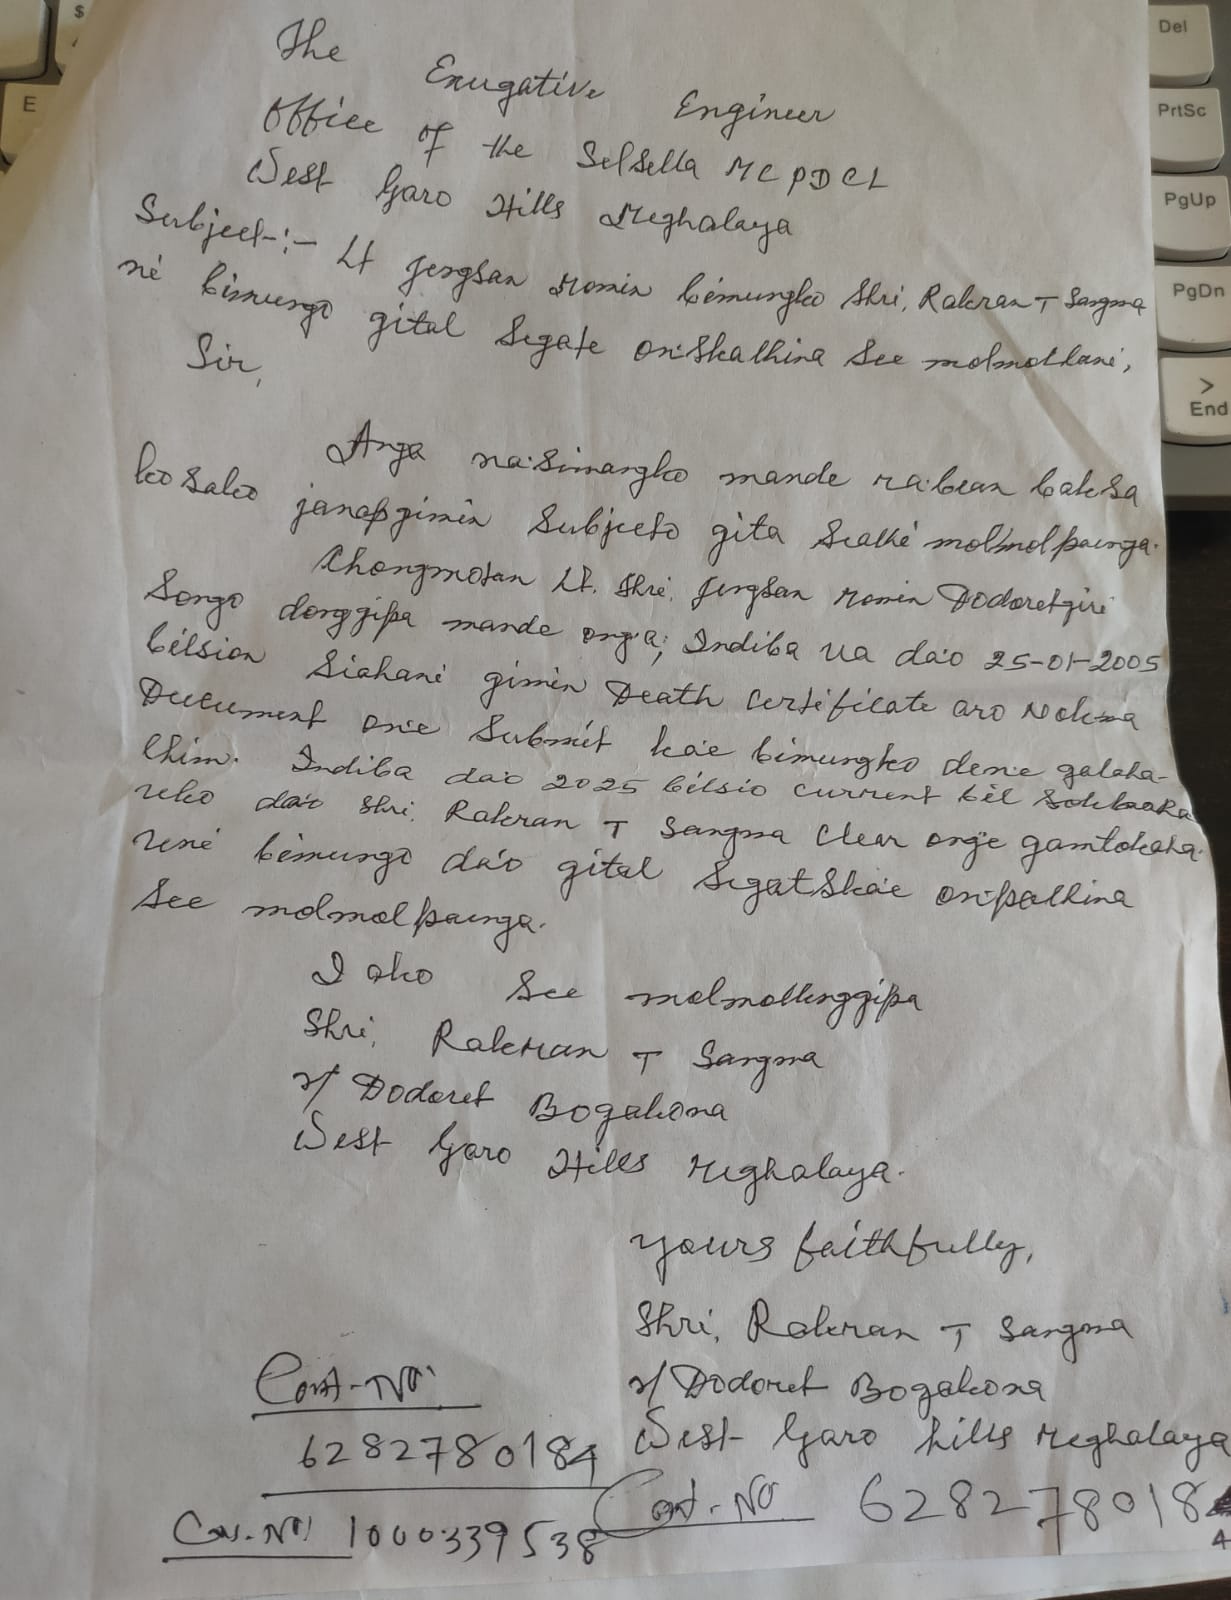 The
Exugative Engineer
Office of the Selsella MCPDCL
West Garo Hills Meghalaya
Subject-:- Lt Jengsan Momin bimungko Shri, Rakran T Sangma
ni bimungo gital Segate on·skachina See molmollani,
Sir,
Anga na·simangko mande ra·bean baksa
ko sako janapgimin Subjecto gita Seake molmolpaenga.
Chongmotan Lt. Shri, Jengsan Momin Dodoretgiri
Songo donggipa mande ong·a; Indiba ua da·o 25-01-2005
bilsion Siahani gimin Death Certificate aro Nokma
Ducument on·e Submit ka·e bimungko den·e galaha-
chim. Indiba da·o 2025 bilsio current bil
uko da·o Shri, Rakran T Sangma Clear ong·e gamtokaha.
Uni bimungo da·o gital SegatSka·e on·pachina
See molmolpaenga.
Iako See molmolenggipa
Shri, Rakran T Sangma
r/ Dodoret Bogakona
West Garo Hills Meghalaya.
yours faithfully,
Shri, Rakran T Sangma
r/ Dodoret Bogakona
West Garo hills Meghalaya
Cont-No.
6282780184
Cont-No 6282780184
Con.No! 1000339538
Del
PrtSc
PgUp
PgDn
>
End
$
E